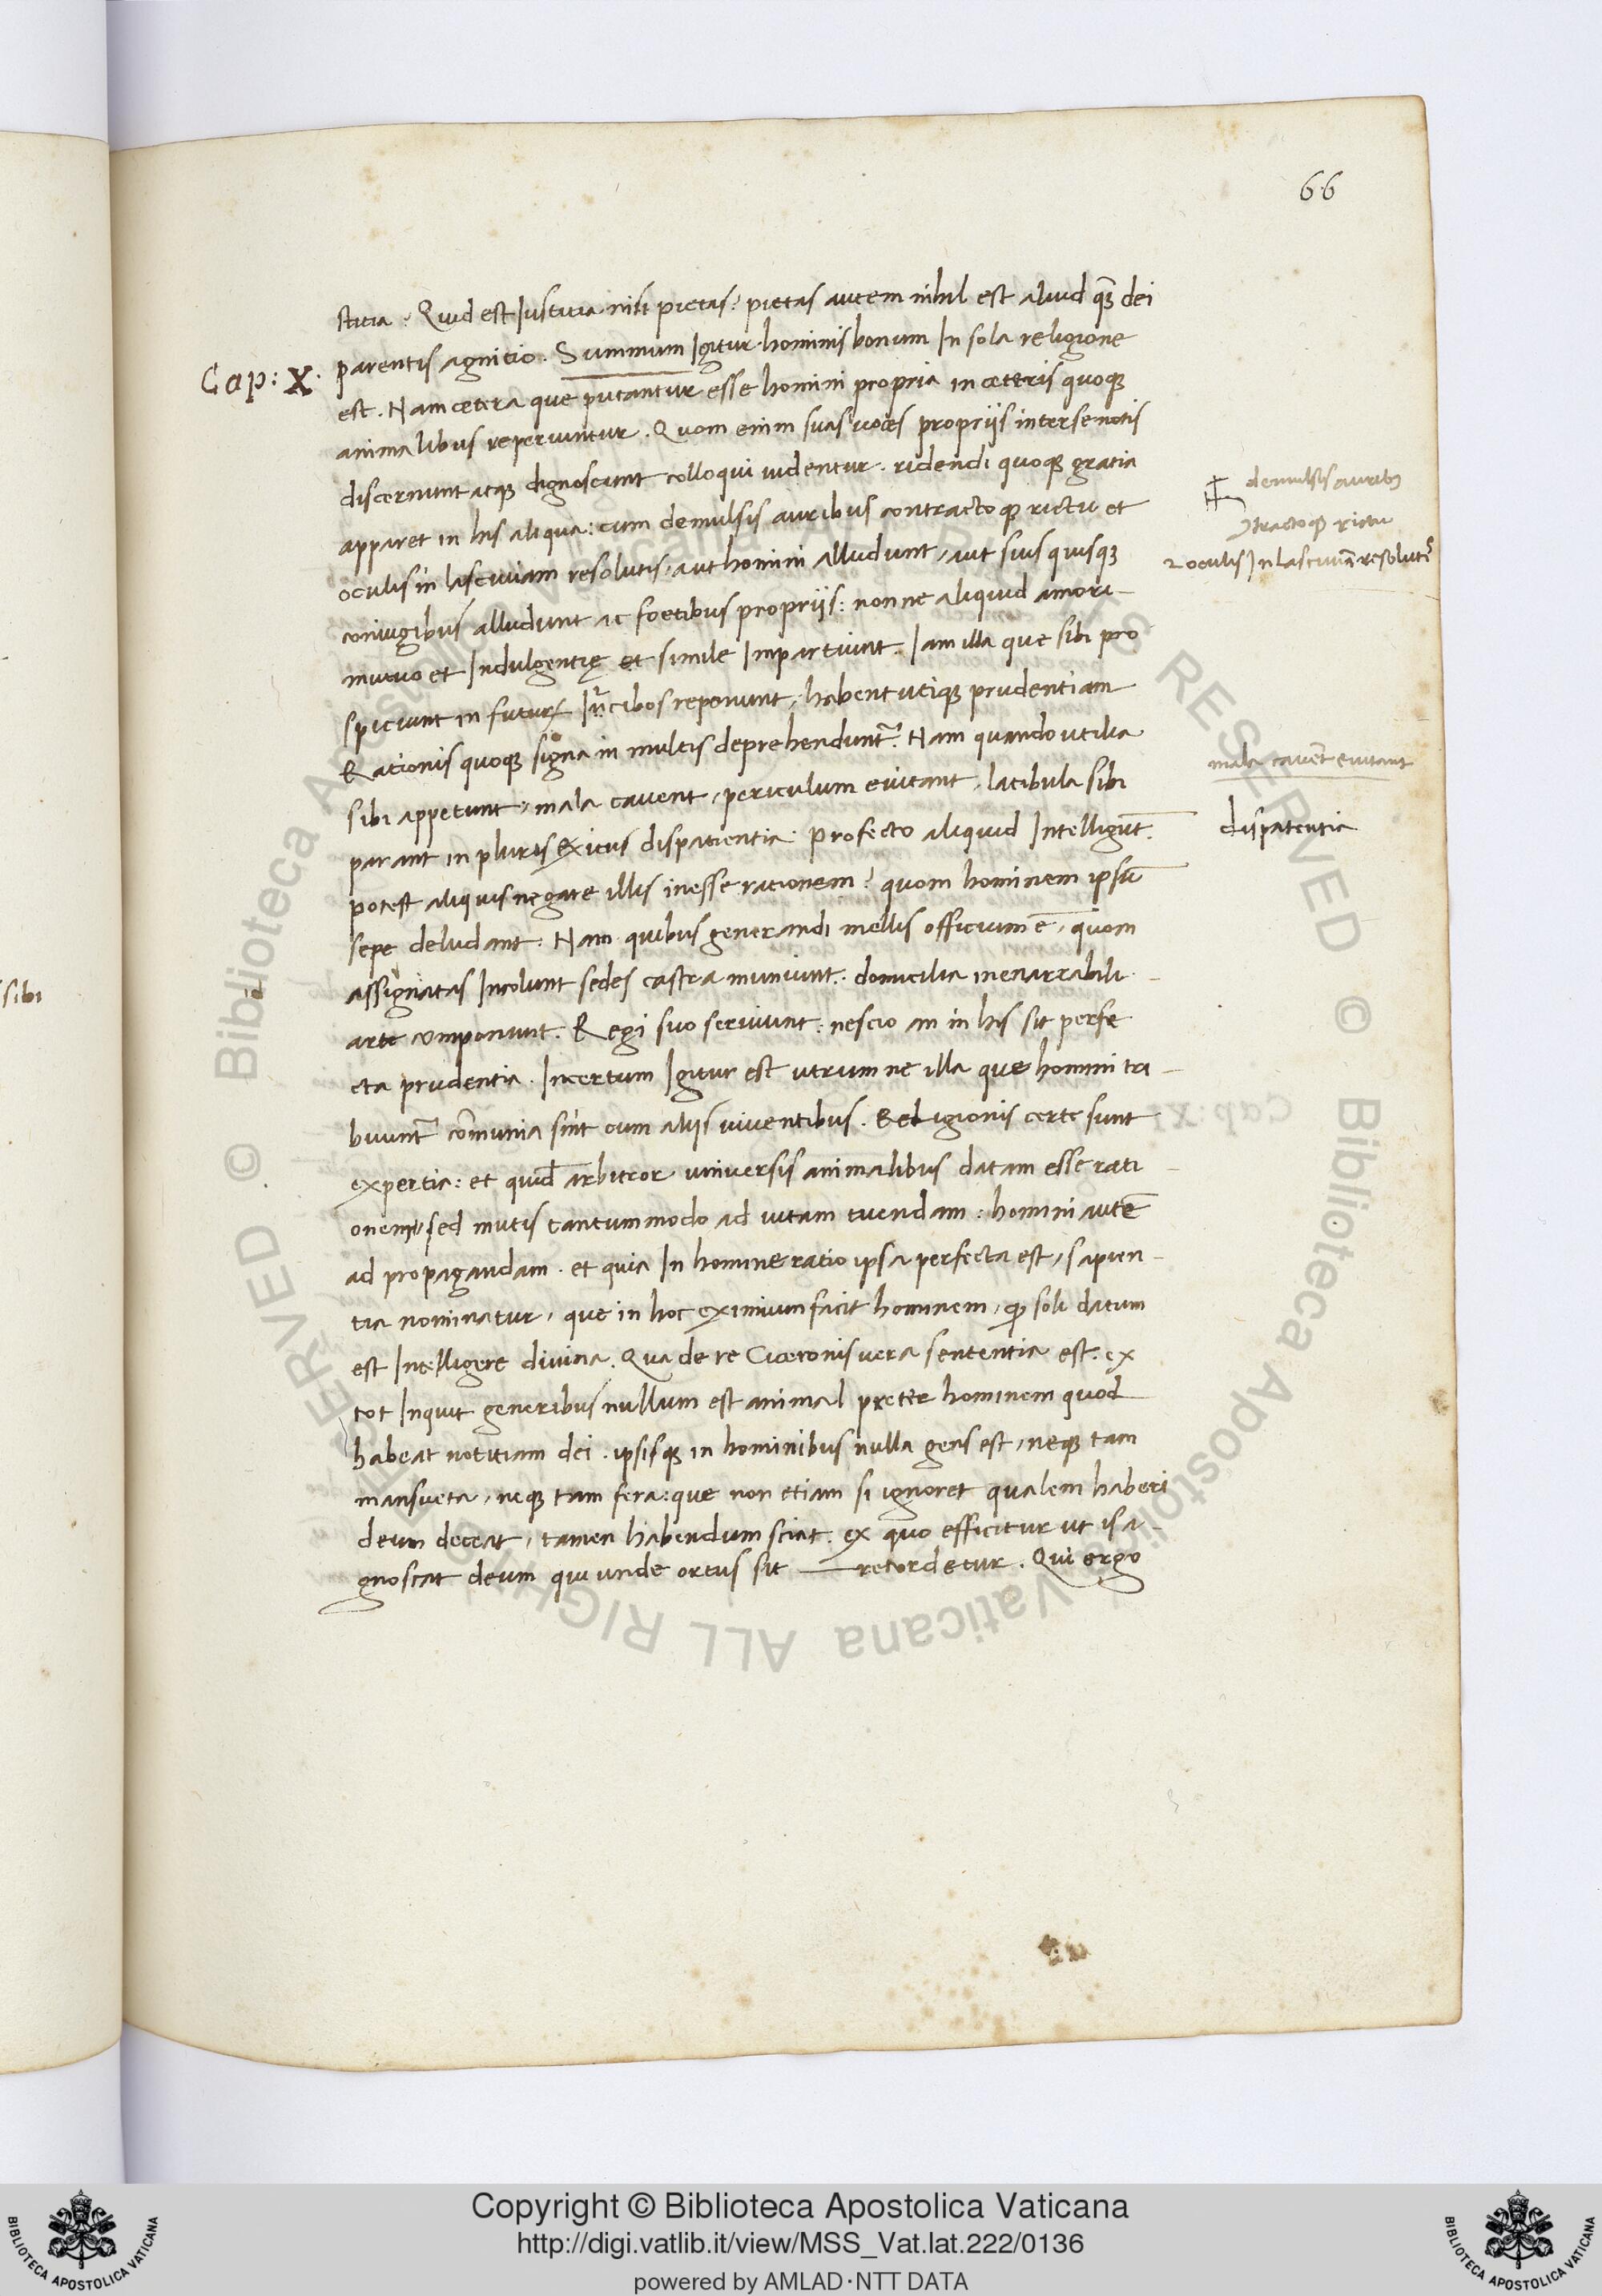 66
stitia. Quid est Iustitia nisi pietas? pietas autem nihil est aliud qꝫ dei
parentis agnitio. Summum Igitur hominis bonum In sola religione
Cap: X.
est. Nam cetera que putantur esse homini propria in ceteris quoqꝫ
animalibus reperiuntur. Quom enim suas uoces propriis inter se notis
discernunt atqꝫ dignoscunt colloqui uidentur. ridendi quoqꝫ gratia
apparet in his aliqua: cum demulsis auribus contractoqꝫ rictu et
oculis in lasciuiam resolutis, aut homini alludunt, aut suis quisqꝫ
coniugibus alludunt ac foetibus propriis: nonne aliquid amori-
mutuo et Indulgentię et simile Impartiunt. Iam illa que sibi pro
spiciunt in futurꝝ cibos reponunt, habent utiqꝫ prudentiam
Rationis quoqꝫ signa in multis deprehendunt᷑. Nam quando utilia
sibi appetunt, mala cauent, periculum euitant, latibula sibi
parant in pluris exitus dispatientia. Profecto aliquid Intelligūt.
potest aliquis negare illis inesse rationem? quom hominem ipsū
sepe deludant. Nam quibus generandi mellis officium ē, quom
assignatas Incolunt sedes castra muniunt. domicilia inenarrabili
arte componunt. Regi suo seruiunt: nescio an in his sit perfe
cta prudentia. Incertum Igitur est utrumne illa que homini tri-
buunt᷑ cōmunia sint cum aliis uiuentibus. Religionis certe sunt
expertia: et quid̄ arbitror uniuersis animalibus datam esse rati
onem, sed mutis tantummodo ad uitam tuendam: homini autē
ad propagandam. et quia In homine ratio ipsa perfecta est, sapien-
tia nominatur, que in hoc eximium facit hominem, qꝫ soli datum
est Intelligere diuina. Qua de re Ciceronis uera sententia est. ex
tot Inquit generibus nullum est animal preter hominem quod
habeat notitiam dei. ipsisqꝫ in hominibus nulla gens est, neqꝫ tam
mansueta, neqꝫ tam fera: que non etiam si ignoret qualem haberi
deum deceat, tamen habendum sciat. ex quo efficitur ut is a-
gnoscat deum qui unde ortus sit — recordetur. Qui ergo
demulsis auribꝫ
ꝯtractoqꝫ rictu
⁊ oculis In lasciuiā resolut᷑
mala cauēt euitant
dispatentia
sibi
Copyright © Biblioteca Apostolica Vaticana
http://digi.vatlib.it/view/MSS_Vat.lat.222/0136
powered by AMLAD·NTT DATA
BIBLIOTECA APOSTOLICA VATICANA
BIBLIOTECA APOSTOLICA VATICANA
© Biblioteca Apostolica Vaticana ALL RIGHTS RESERVED © Biblioteca Apostolica Vaticana ALL RIGHTS RESERVED